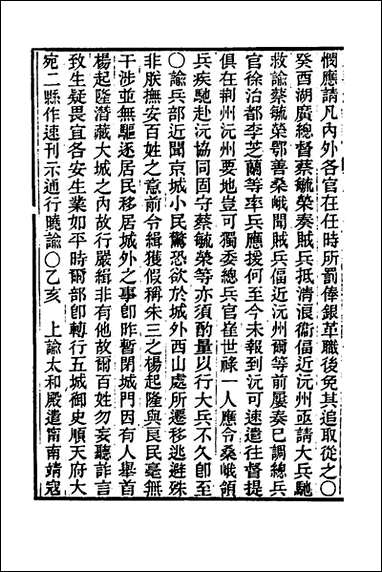 憫應請凡內外各官在任時所罰俸銀革職後免其追取從之○
癸酉湖廣總督蔡毓榮奏賊兵抵清浪衞偪近沅州亟請大兵馳
救諭蔡毓榮鄂善桑峨聞賊兵偪近沅州爾等前屢奏已調總兵
官徐治都李芝蘭等率兵應援何至今未報到沅可速遣往督提
俱在荆州沅州要地豈可獨委總兵官崔世祿一人應令桑峨領
兵疾馳赴沅協同固守蔡毓榮等亦須酌量以行大兵不久卽至
○諭兵部近聞京城小民驚恐欲於城外西山處所遷移逃避殊
非朕撫安百姓之意前令緝獲假稱朱三之楊起隆與良民毫無
干涉並無驅逐居民移居城外之事卽昨暫閉城門因有人舉首
楊起隆潛藏大城之內故行嚴緝非有他故爾百姓勿妄聽訛言
致生疑畏宜各安生業如平時爾部卽轉行五城御史順天府大
宛二縣作速刊示通行曉諭○乙亥　上諭太和殿遣甯南靖寇